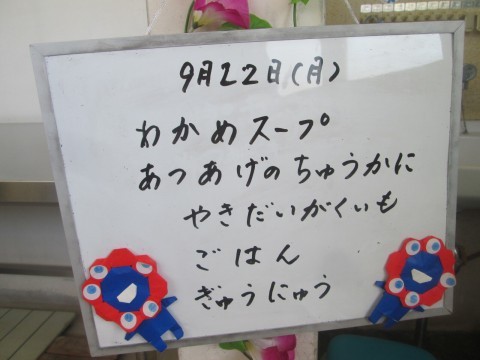 9月22日(月)
わかめスープ
あつあげのちゅうかに
やきだいがくいも
ごはん
ぎゅうにゅう